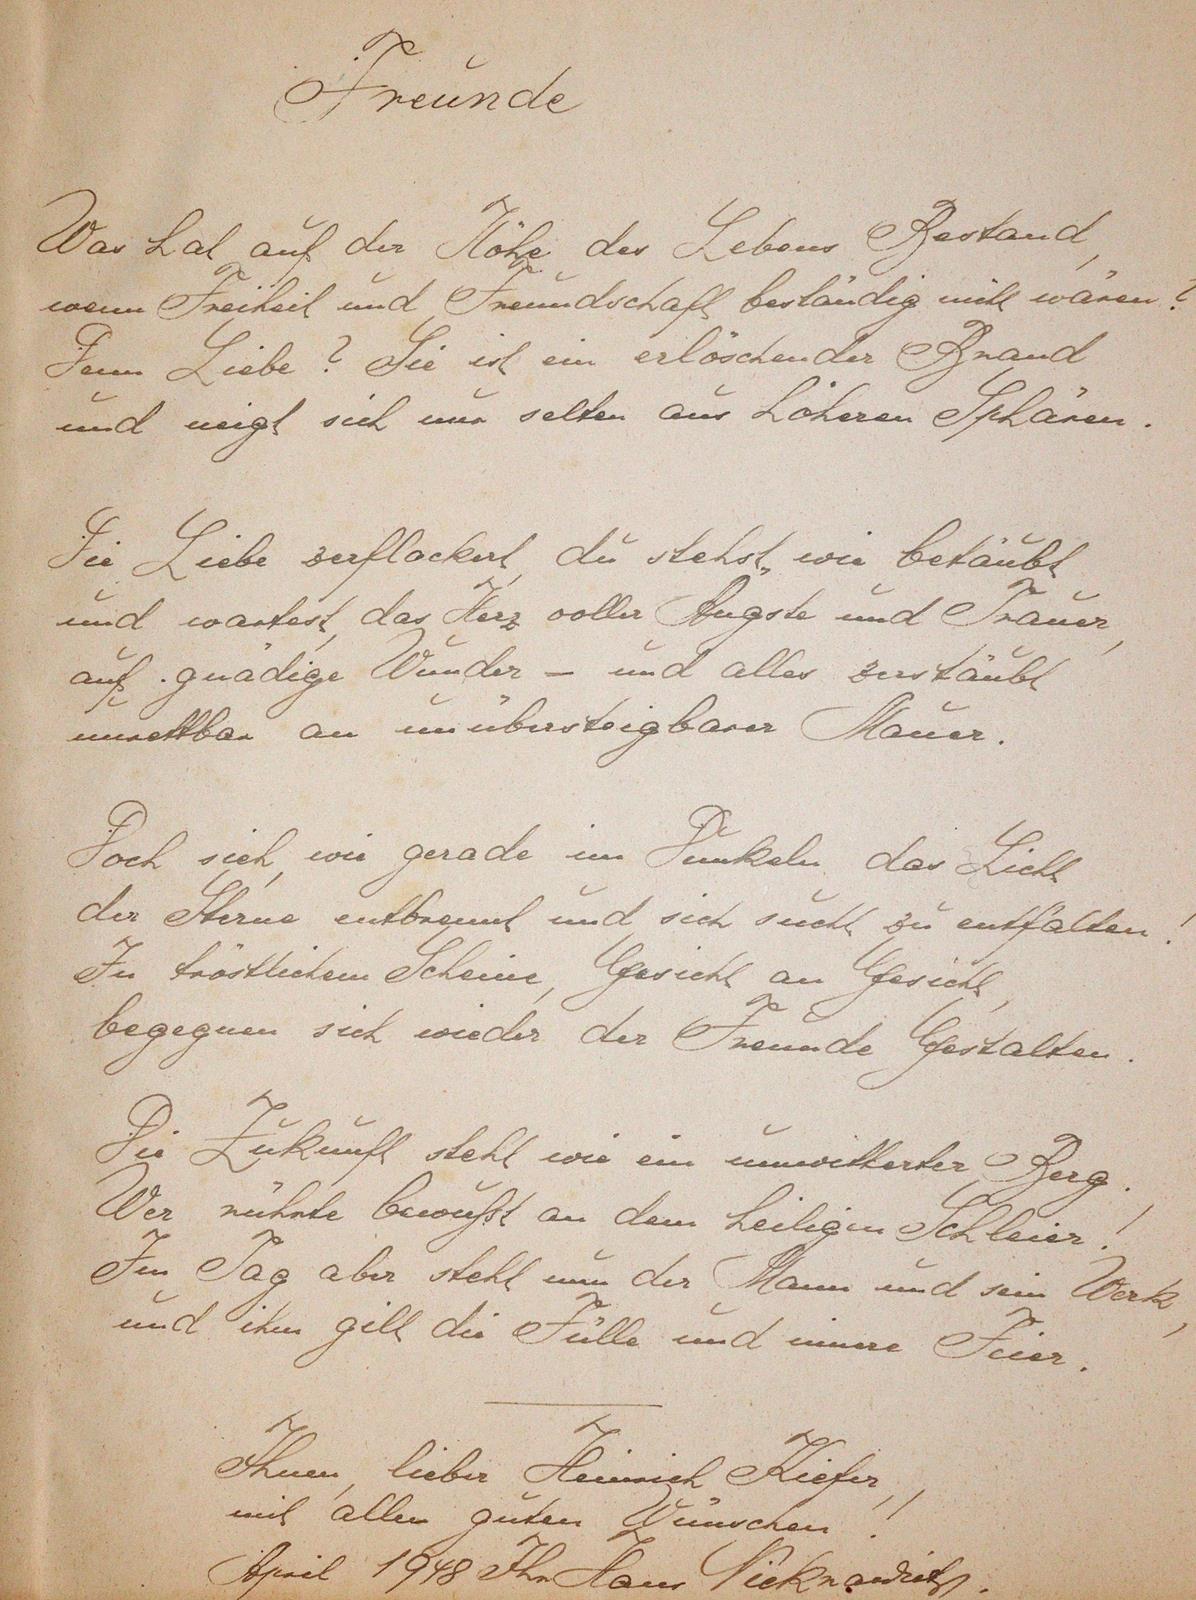 Freunde
Was hat auf der Höhe des Lebens Bestand,
wenn Freiheit und Freundschaft beständig nicht wären?
Denn Liebe? Sie ist ein erlöschender Brand
und neigt sich nur selten aus höheren Sphären.
Die Liebe zerflackert, du stehst, wie betäubt
und wartest, das Herz voller Ängste und Trauer,
auf gnädige Wunder – und alles zerstäubt
unrettbar an unübersteigbarer Mauer.
Doch sieh, wie gerade im Dunkeln das Licht
der Sterne entbrennt und sich sucht zu entfalten!
In tröstlichem Scheine, Gesicht an Gesicht,
begegnen sich wieder der Freunde Gestalten.
Die Zukunft steht wie ein umwitterter Berg.
Wer rührte bewußt an dem heiligen Schleier!
Im Tag aber steht nun der Mann und sein Werk,
und ihm gilt die Fülle und innere Feier.
Ihnen, lieber Heinrich Kiefer,
mit allen guten Wünschen!
April 1948 Ihr Hans